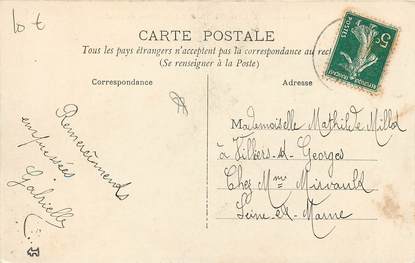 10 €
CARTE POSTALE
Tous les pays étrangers n'acceptent pas la correspondance au rect
(Se renseigner à la Poste)
Correspondance
Adresse
POSTES
5c
Remerciements
empressées
Gabrielle
Mademoiselle Mathilde Millot
à Villiers-St-Georges
Chez Mme Mirvault
Seine-et-Marne